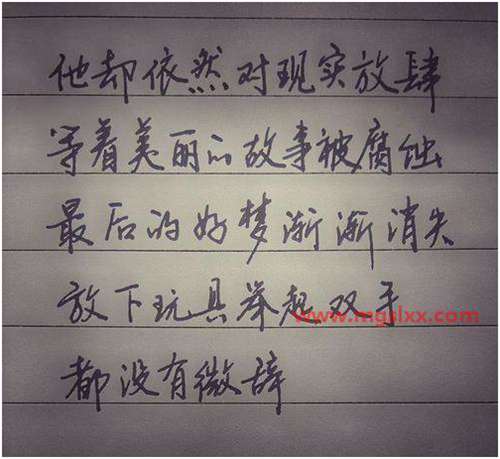 他却依然对现实放肆
等着美丽的故事被腐蚀
最后的好梦渐渐消失
放下玩具举起双手
www.mgslxx.com
都没有微辞